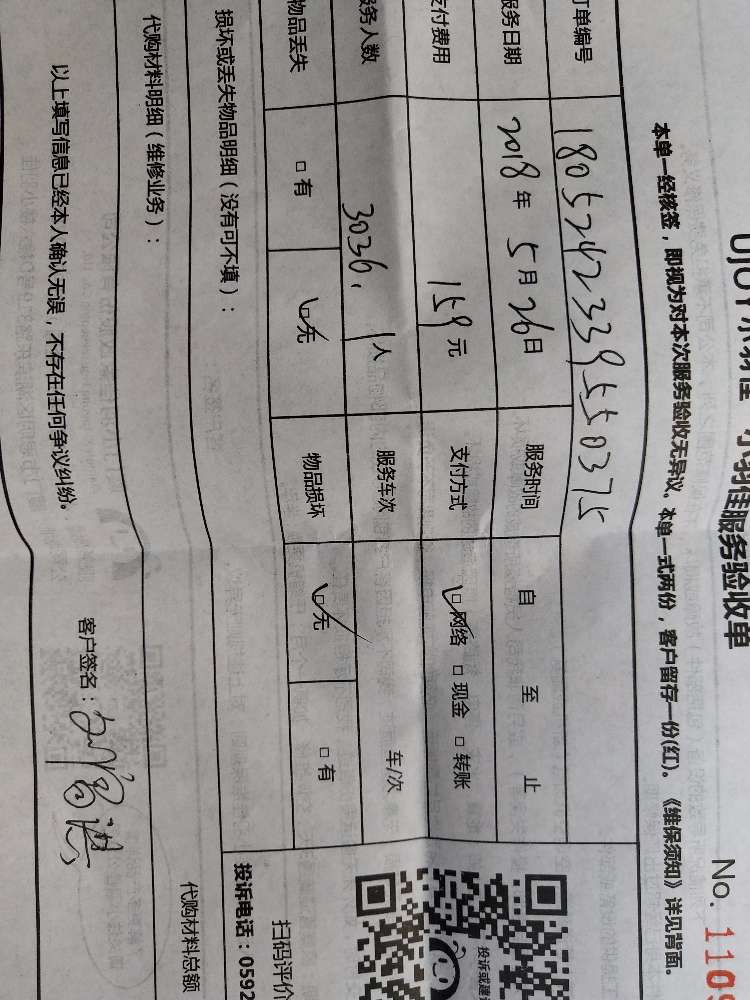 小羽佳服务验收单
No. 110
本单一经核签，即视为对本次服务验收无异议。本单一式两份，客户留存一份(红)。《维保须知》详见背面。
订单编号 1805242339550375
服务日期 2018年 5月26日 服务时间 自 至 止
支付费用 159元 支付方式 ☑网络 □现金 □转账
服务人数 3036. 1人 服务车次 车/次
物品丢失 □有 ☑无 物品损坏 ☑无 □有
损坏或丢失物品明细（没有可不填）：
投诉或建议
扫码评价
投诉电话：0592
代购材料明细（维修业务）：
代购材料总额
以上填写信息已经本人确认无误，不存在任何争议纠纷。
客户签名：